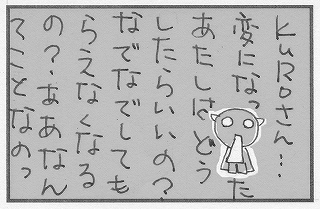 KUROさん…
変になった
あたしはどう
したらいいの?
なでなでしても
らえなくなる
の?ああなん
てことなのっ